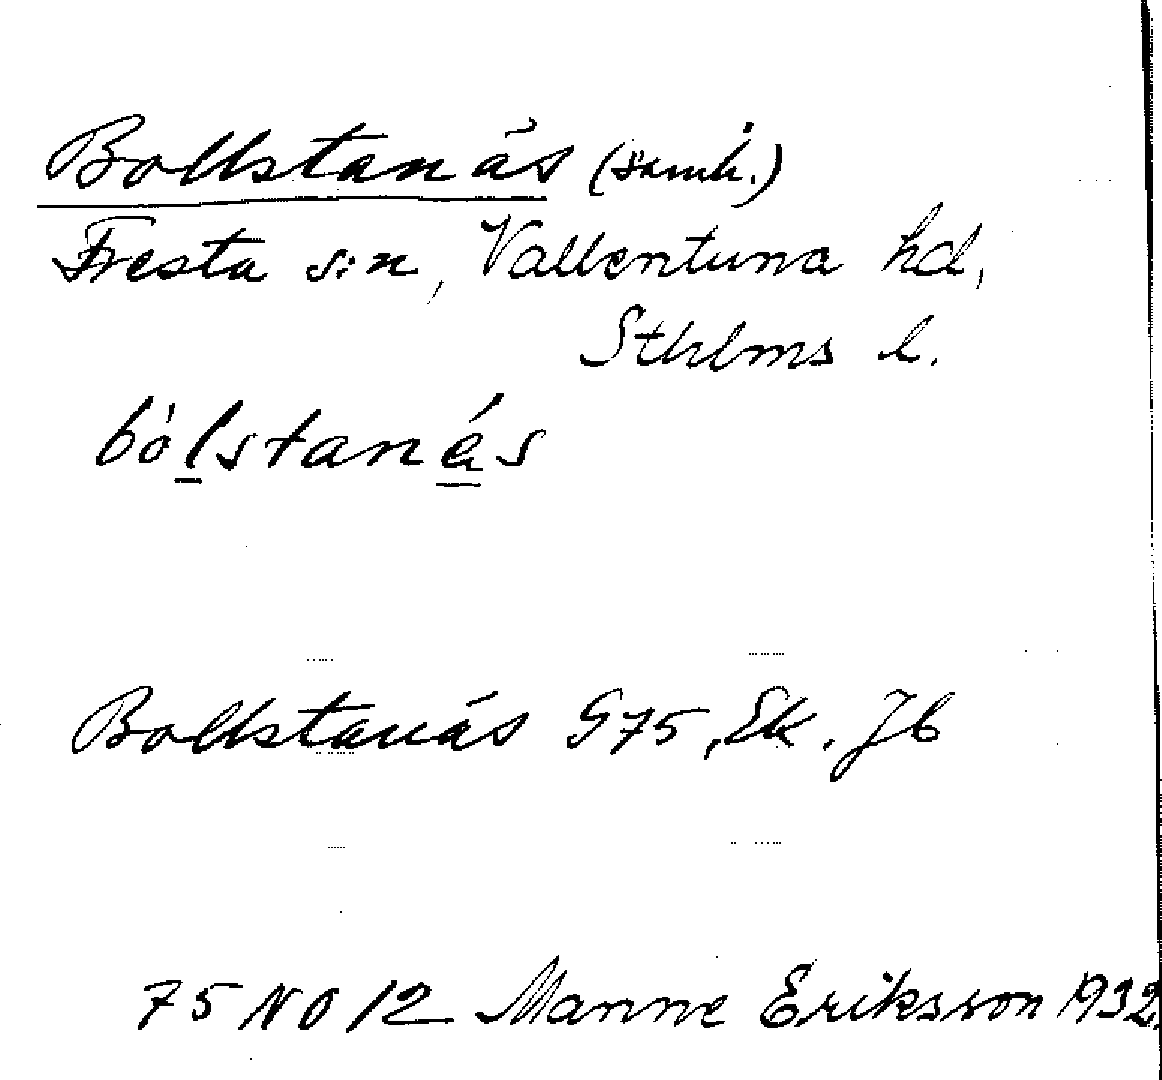 Bollstanäs (samh.)
Fresta s:n, Vallentuna hd,
Sthlms l.
bòlstanás
Bollstanäs G75, Ek. Jb
75 NO 12 Manne Eriksson 1932